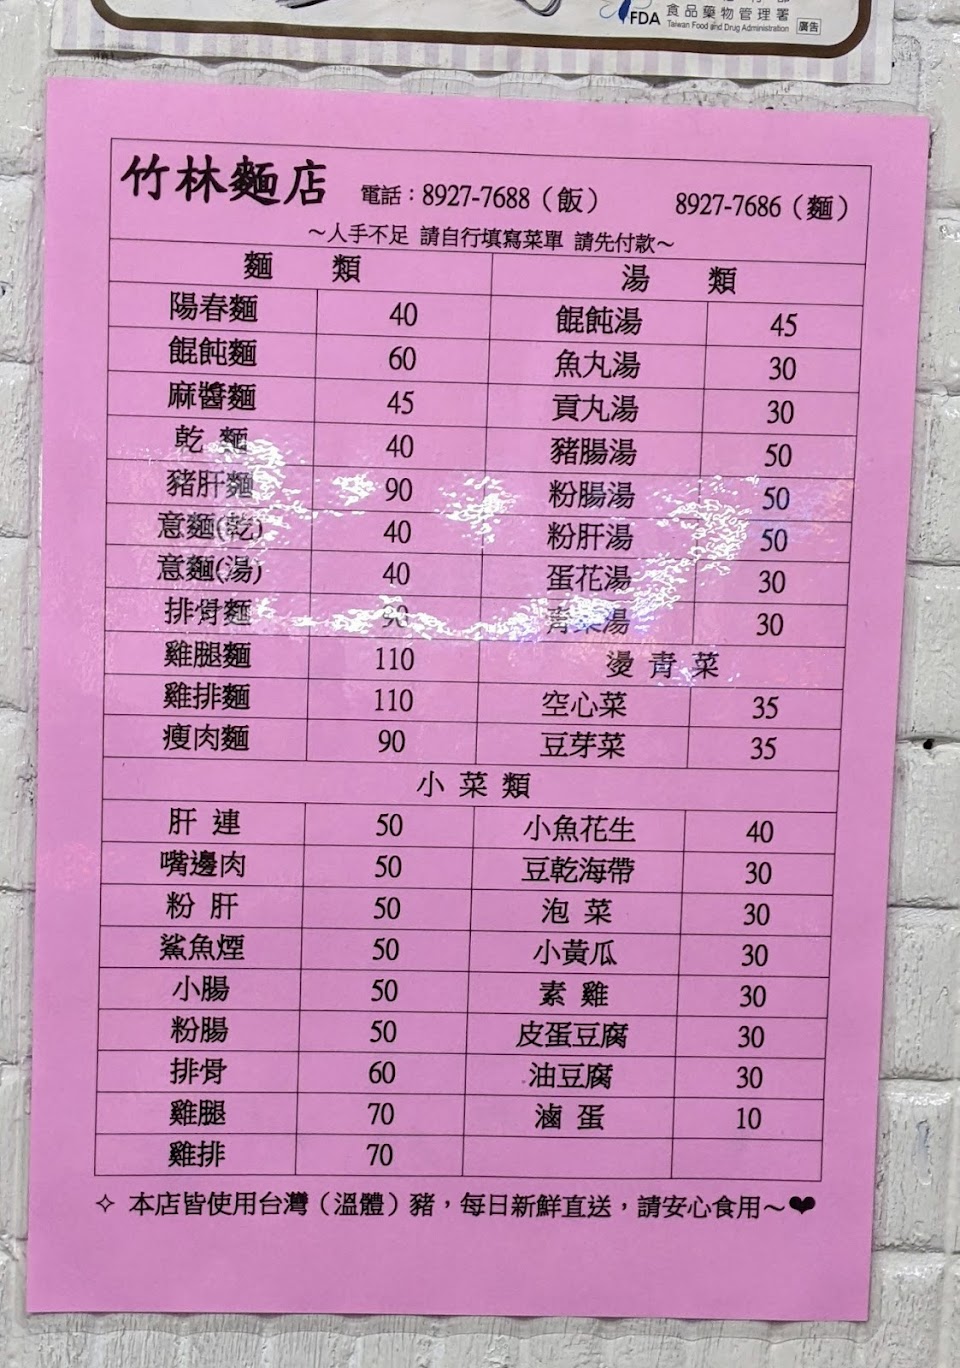 FDA 食品藥物管理署
Taiwan Food and Drug Administration 廣告
竹林麵店 電話：8927-7688（飯） 8927-7686（麵）
～人手不足 請自行填寫菜單 請先付款～
麵 類 湯 類
陽春麵 40 餛飩湯 45
餛飩麵 60 魚丸湯 30
麻醬麵 45 貢丸湯 30
乾 麵 40 豬腸湯 50
豬肝麵 90 粉腸湯 50
意麵(乾) 40 粉肝湯 50
意麵(湯) 40 蛋花湯 30
排骨麵 90 青菜湯 30
雞腿麵 110 燙 青 菜
雞排麵 110 空心菜 35
瘦肉麵 90 豆芽菜 35
小 菜 類
肝 連 50 小魚花生 40
嘴邊肉 50 豆乾海帶 30
粉 肝 50 泡 菜 30
鯊魚煙 50 小黃瓜 30
小腸 50 素 雞 30
粉腸 50 皮蛋豆腐 30
排骨 60 油豆腐 30
雞腿 70 滷 蛋 10
雞排 70
✧ 本店皆使用台灣（溫體）豬，每日新鮮直送，請安心食用～❤